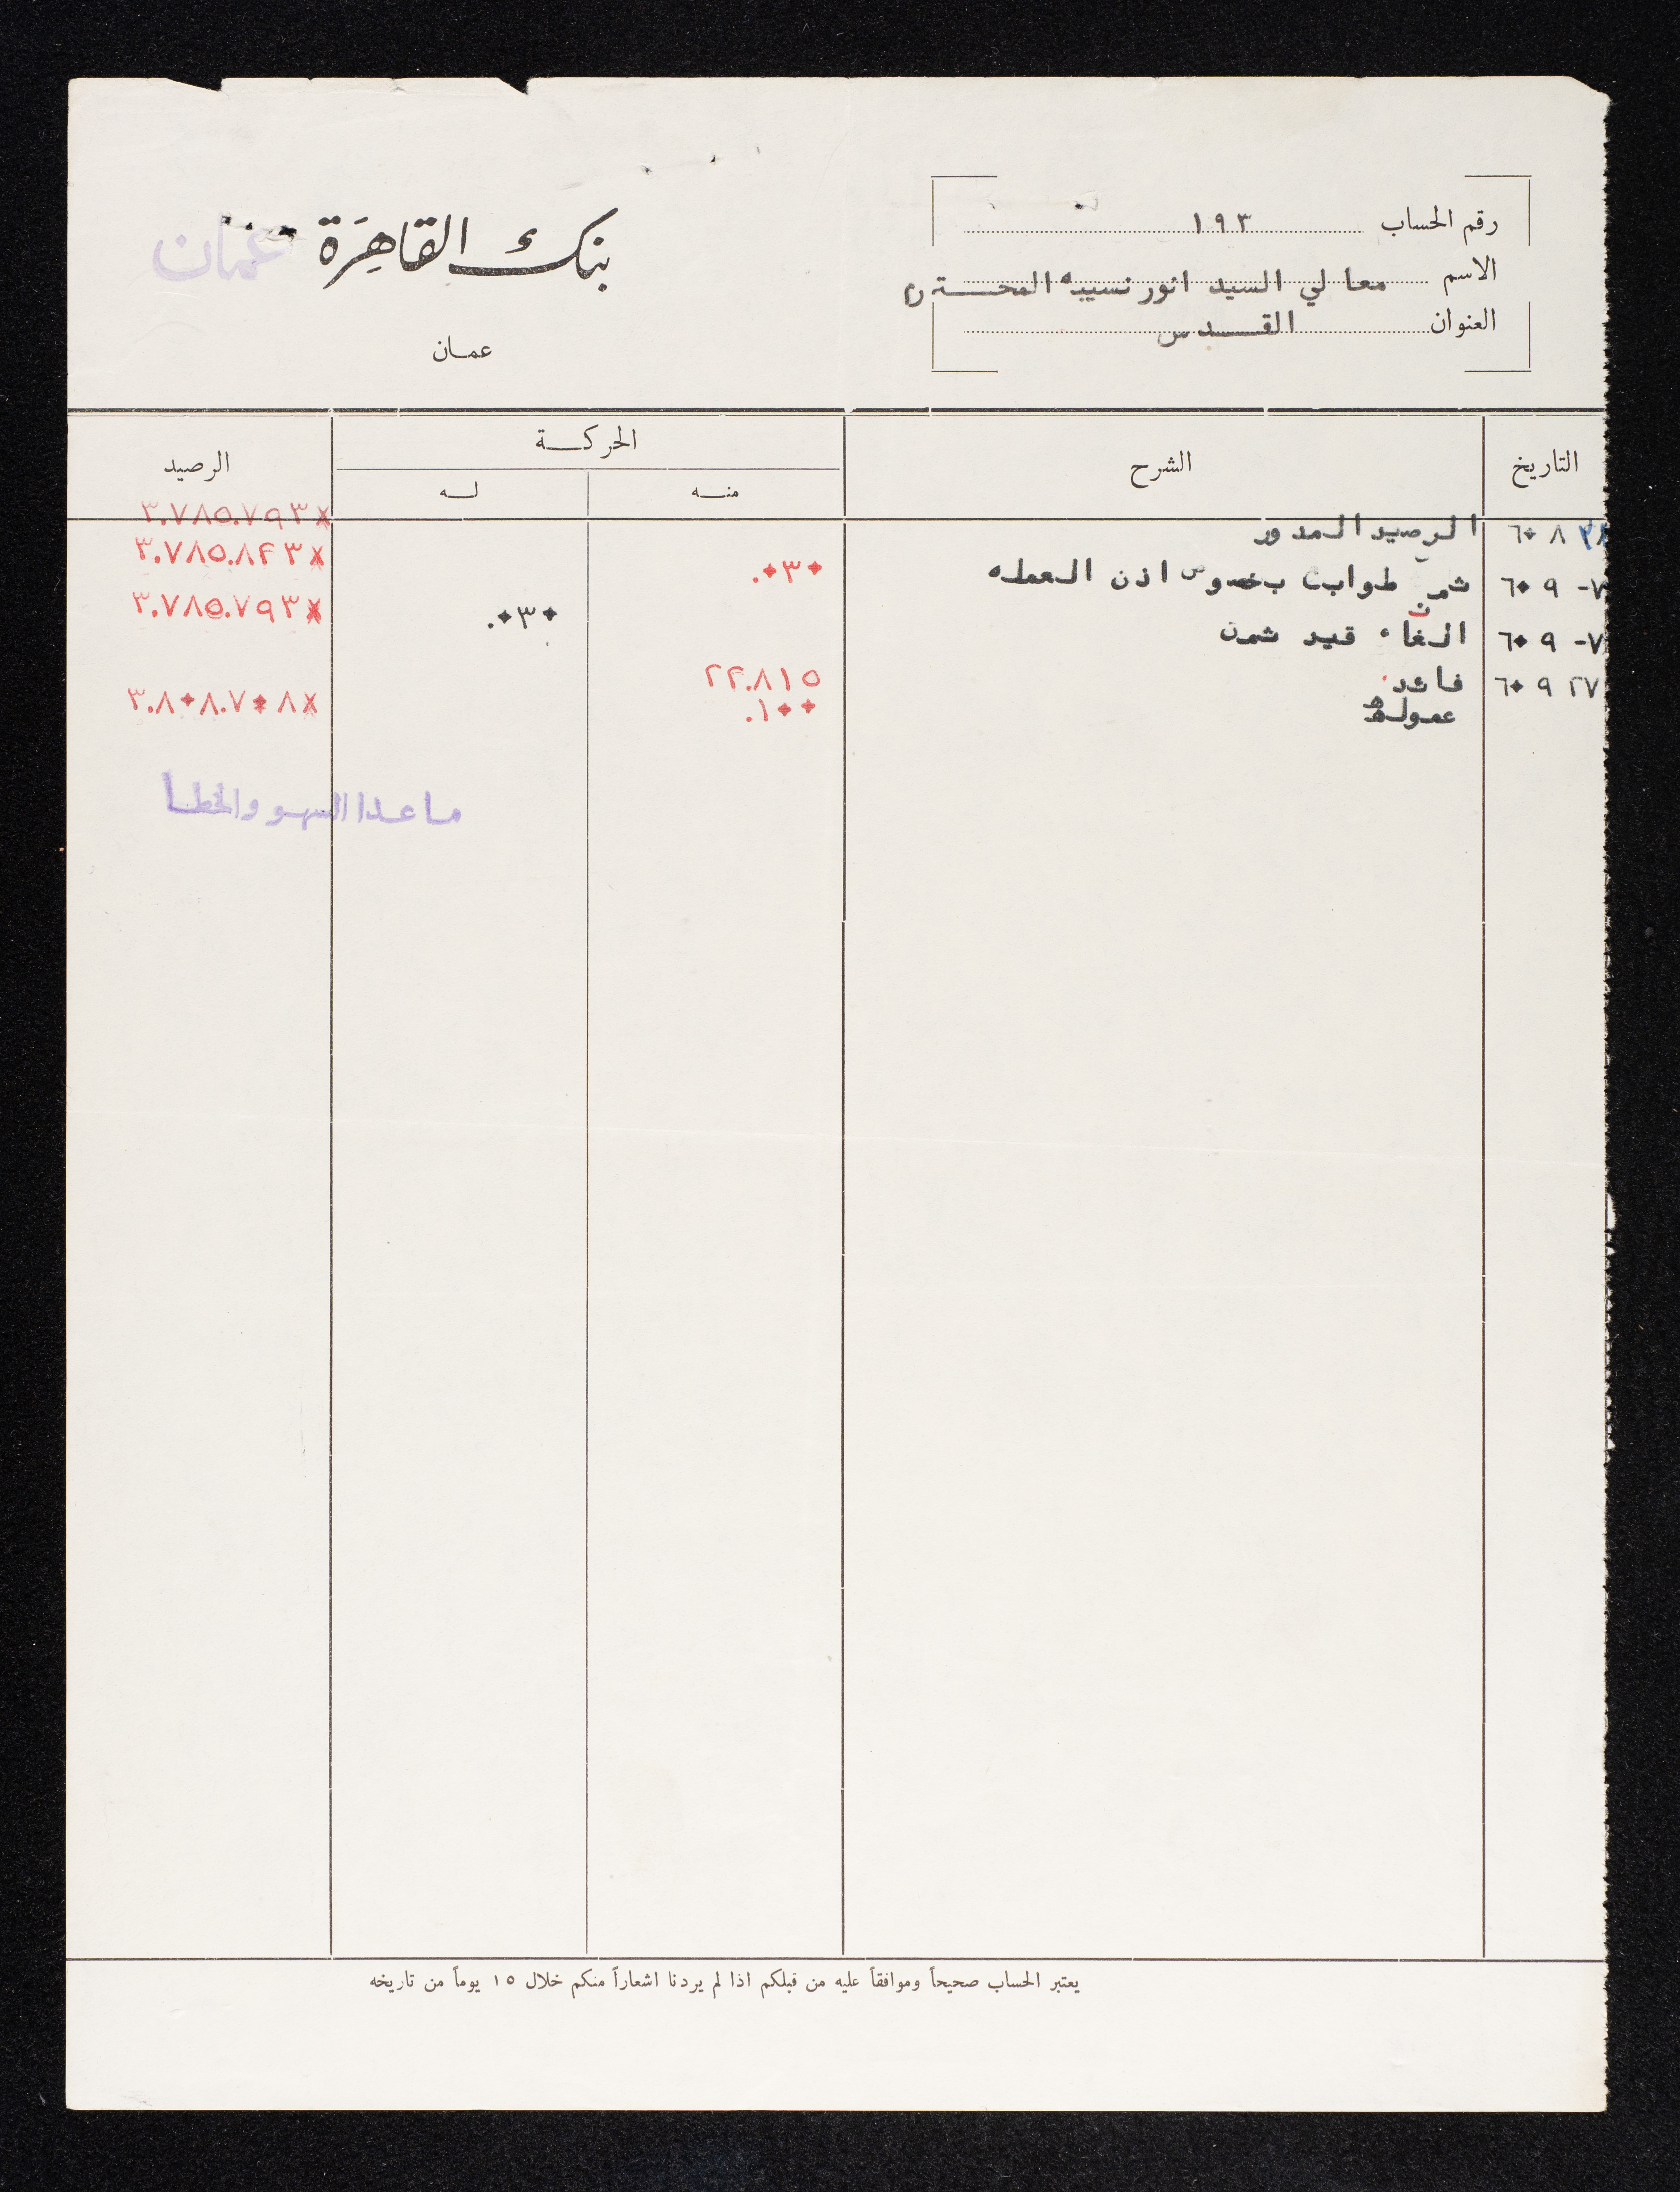 رقم الحساب ١٩٣
الاسم معالي السيد انور نسيبه المحترم
العنوان القدس
بنك القاهرة عمان
عمان
التاريخ الشرح الحركة الرصيد
منه له
٨ ٦٠ الرصيد المدور ٣.٧٨٥.٧٩٣x
٧- ٩ ٦٠ ثمن طوابع بخصوص اذن العمله .٠٣٠ ٣.٧٨٥.٨٢٣x
٧- ٩ ٦٠ الغاء قيد ثمن .٠٣٠ ٣.٧٨٥.٧٩٣x
٢٧ ٩ ٦٠ فائدة ٢٢.٨١٥
عموله .١٠٠ ٣.٨٠٨.٧٠٨x
ما عدا السهو والخطأ
يعتبر الحساب صحيحاً وموافقاً عليه من قبلكم اذا لم يردنا اشعاراً منكم خلال ١٥ يوماً من تاريخه